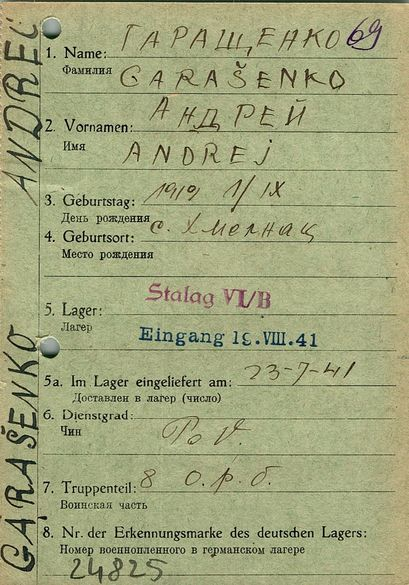 ГАРАЩЕНКО 69
1. Name:
Фамилия GARAŠENKO
АНДРЕЙ
2. Vornamen:
Имя ANDREJ
3. Geburtstag: 1919 1/IX
День рождения
4. Geburtsort: с.
Место рождения
Stalag VI/B
5. Lager:
Лагер
Eingang 19.VIII.41
5a. Im Lager eingeliefert am: 23-7-41
Доставлен в лагер (число)
6. Dienstgrad:
Чин
7. Truppenteil: 8 О.р.б.
Воинская часть
8. Nr. der Erkennungsmarke des deutschen Lagers:
Номер военнопленного в германском лагере
24825
GARAŠENKO ANDREJ